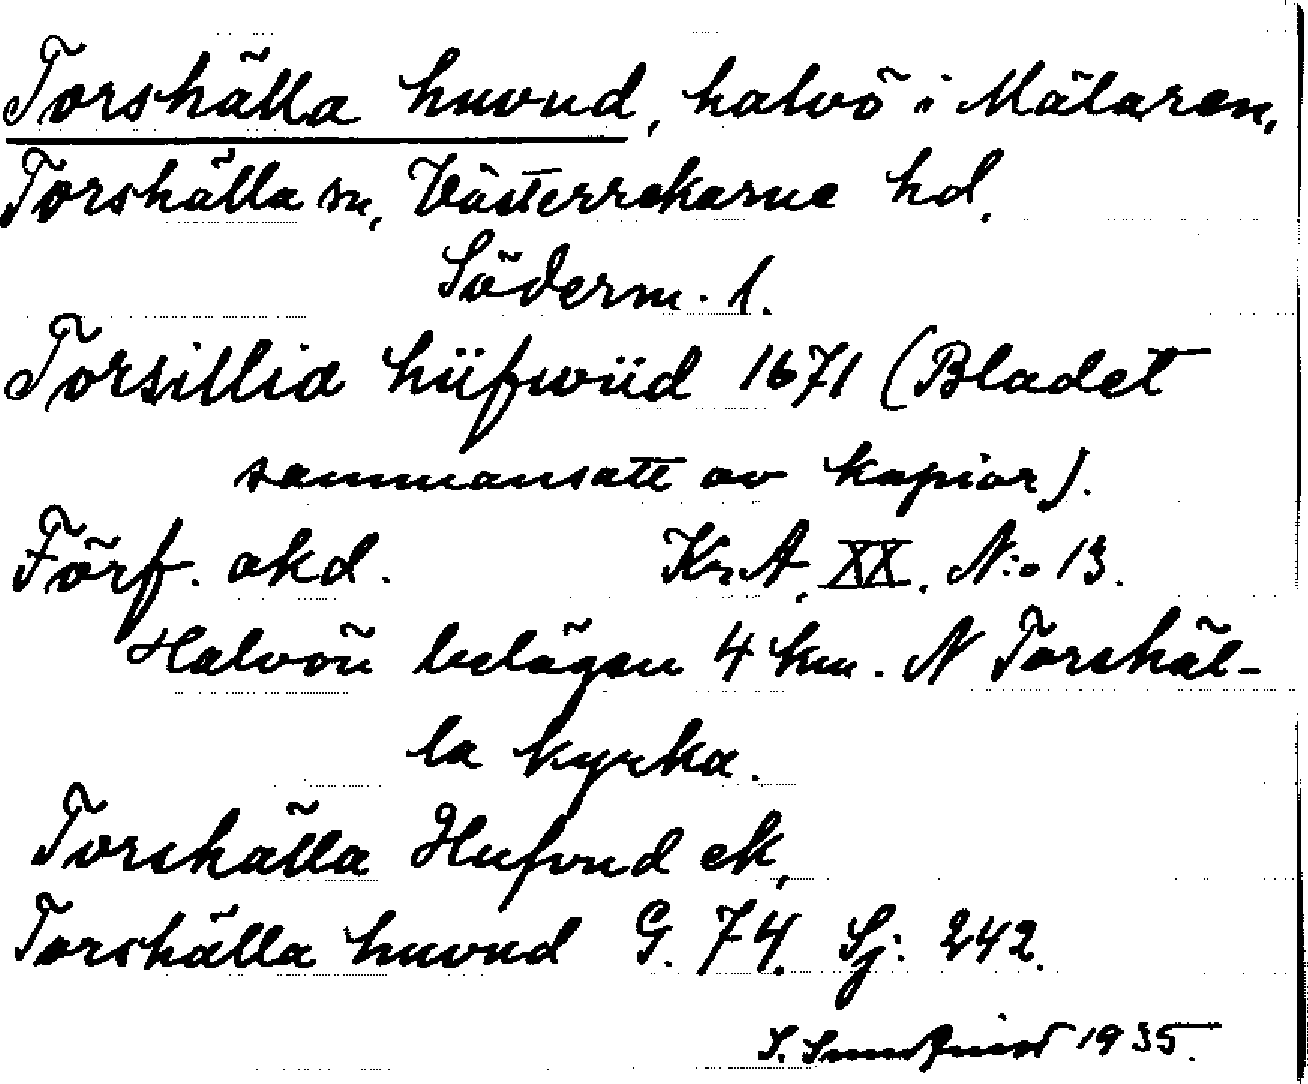 Torshälla huvud, halvö i Mälaren,
Torshälla sn, Västerrekarne hd,
Söderm. l.
Torsillia hüfwüd 1671 (Bladet
sammansatt av kopior).
Förf. okd. Kr.A. XX. N:o 13.
Halvön belägen 4 km. N Torshäl-
la kyrka.
Torshälla Hufvud ek,
Torshälla huvud G. 74. Sj: 242.
S. 1935.